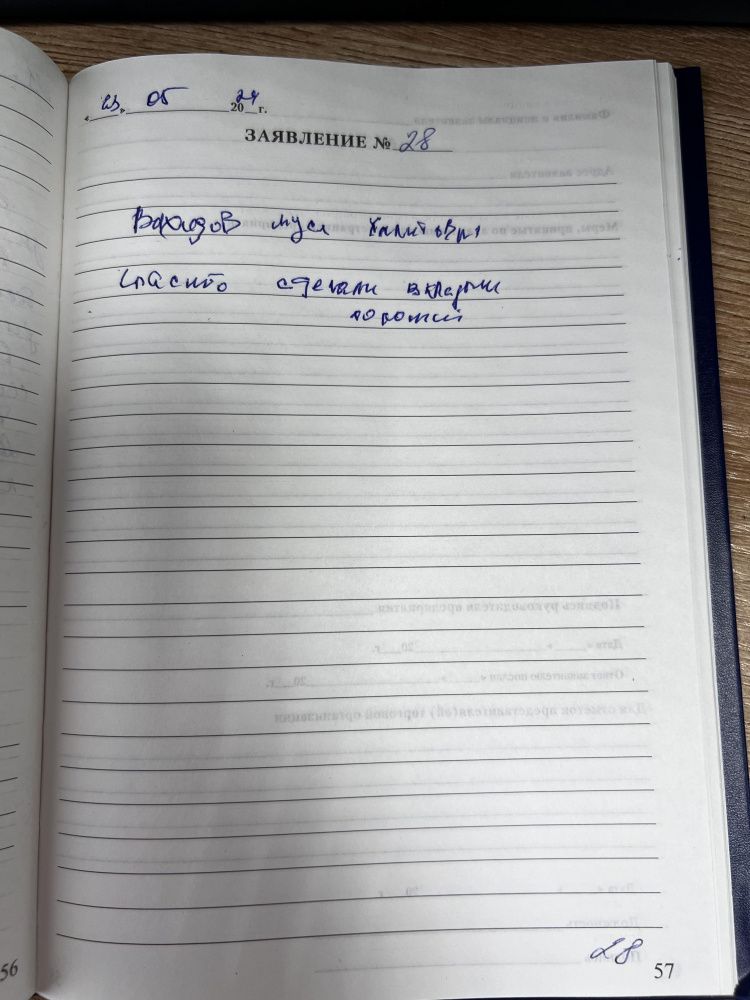 « 23 » 05 2024 г.
ЗАЯВЛЕНИЕ № 28
Вахидов Муса
Спасибо сделали вкладыш
хороший
28
56
57